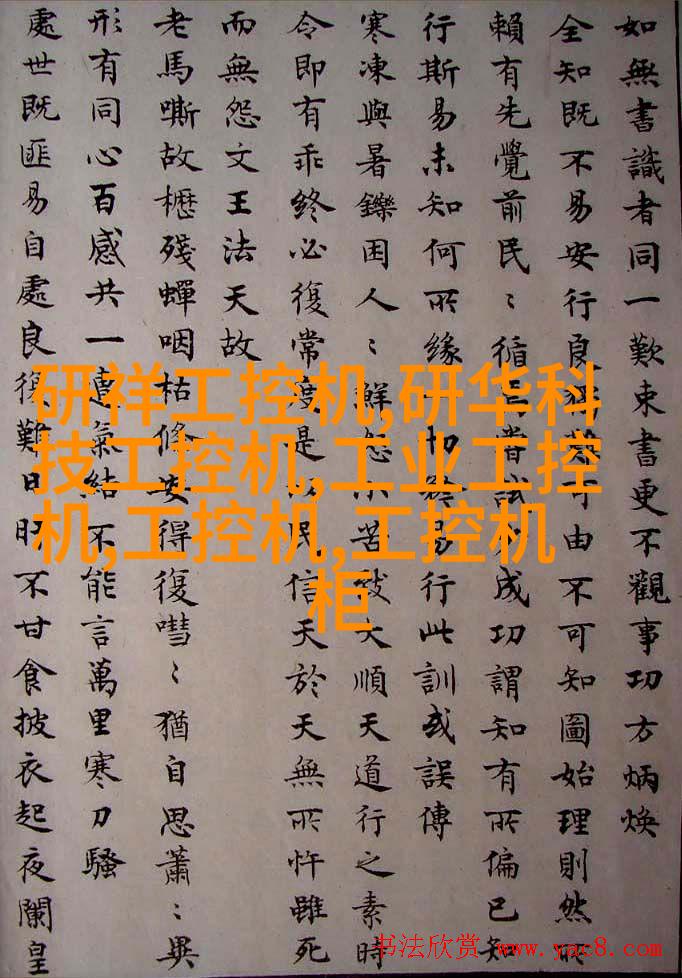 如無書識者同一歎束書更不觀事功方炳煥
全知既不易安行良獨難可由不可知圖始理則然所
賴有先覺前民〻循昔試成功謂知有所偏已知
行斯易未知何所緣切易行此訓或誤傳
寒凍與暑鑠困人〻鮮怨小苦致大順天道行之素時
令即有乖終必復常度是以民信天於天無所忤雖死
而無怨文王法天故
老馬嘶故櫪殘蟬咽枯條安得復嘒〻猶自思蕭〻異
形有同心百感共一遭氣結不能言萬里寒刀騷
處世既匪易自處良復難日旰不甘食披衣起夜闌皇
研祥工控机,研华科
技工控机,工业工控
机,工控机,工控机
柜
书法欣赏 www.yac8.com